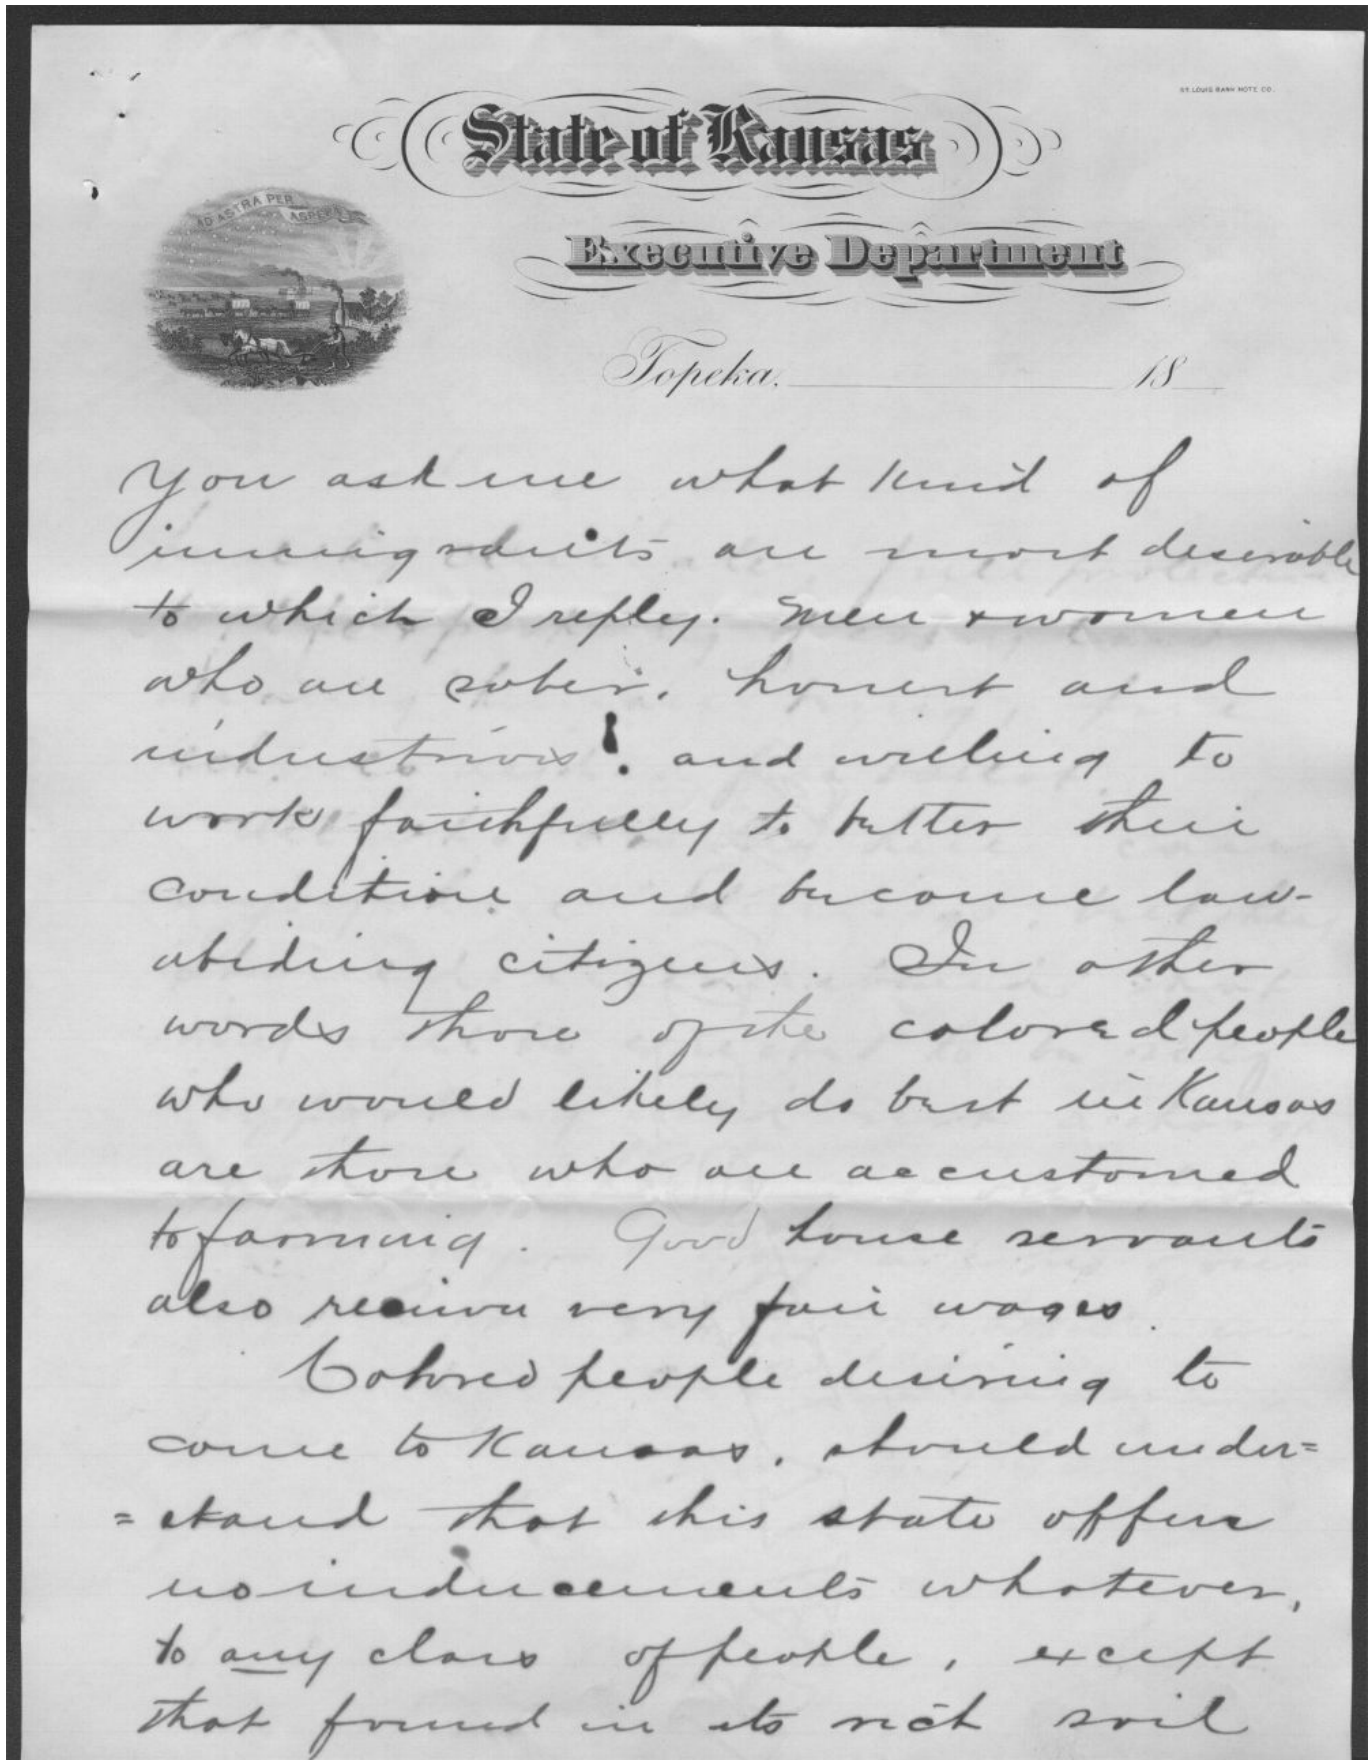 ST. LOUIS BANK NOTE CO.
State of Kansas
AD ASTRA PER ASPERA
Executive Department
Topeka, 18
You ask me what kind of
immigrants are most desirable
to which I reply. Men & women
who are sober, honest and
industrious! and willing to
work faithfully to better their
condition and become law-
abiding citizens. In other
words those of the colored people
who would likely do best in Kansas
are those who are accustomed
to farming. Good house servants
also receive very fair wages.
Colored people desiring to
come to Kansas, should under=
=stand that this state offers
no inducements whatever,
to any class of people, except
that found in its rich soil